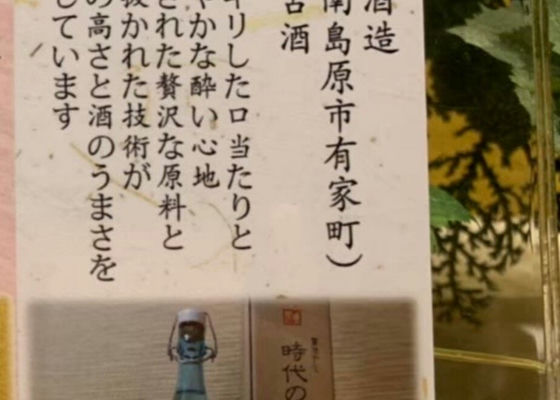 酒造
南島原市有家町）
古酒
キリした口当たりと
やかな酔い心地
された贅沢な原料と
抜かれた技術が
の高さと酒のうまさを
しています
時代の